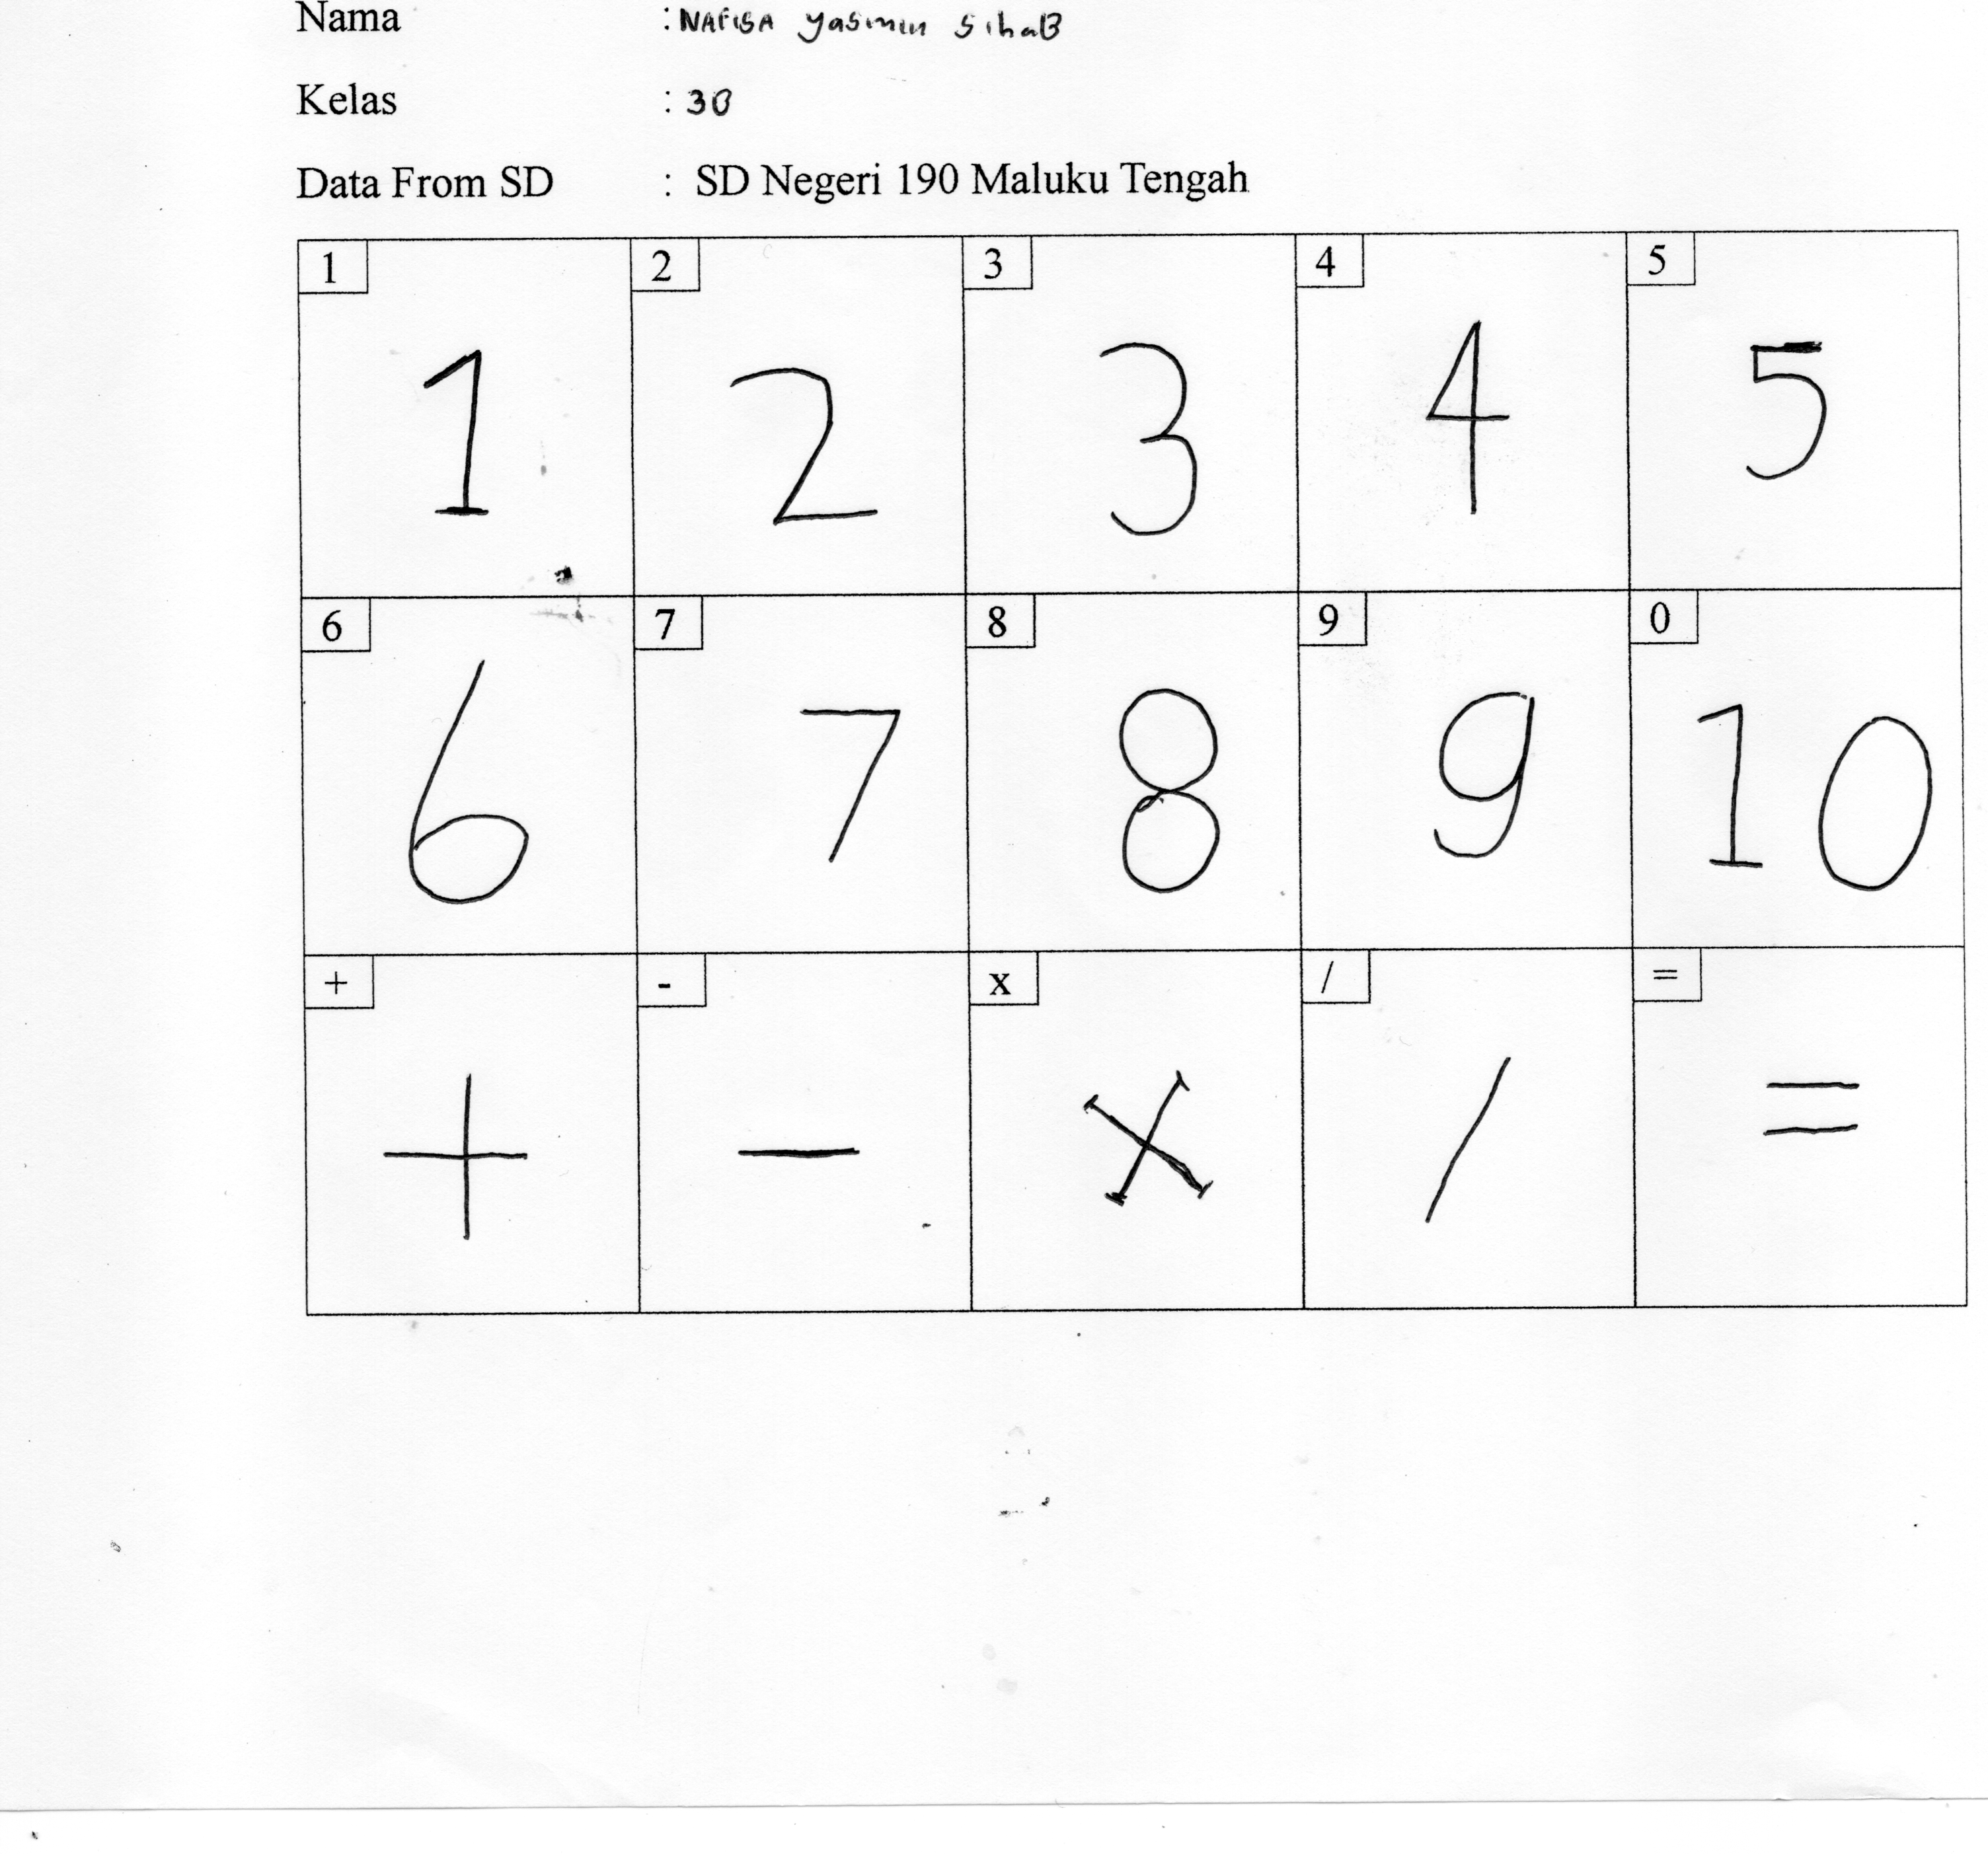 Nama : NAFISA yasmin sihaB
Kelas : 3B
Data From SD : SD Negeri 190 Maluku Tengah
1 2 3 4 5
1 2 3 4 5
6 7 8 9 0
6 7 8 9 10
+ - x / =
+ - x / =